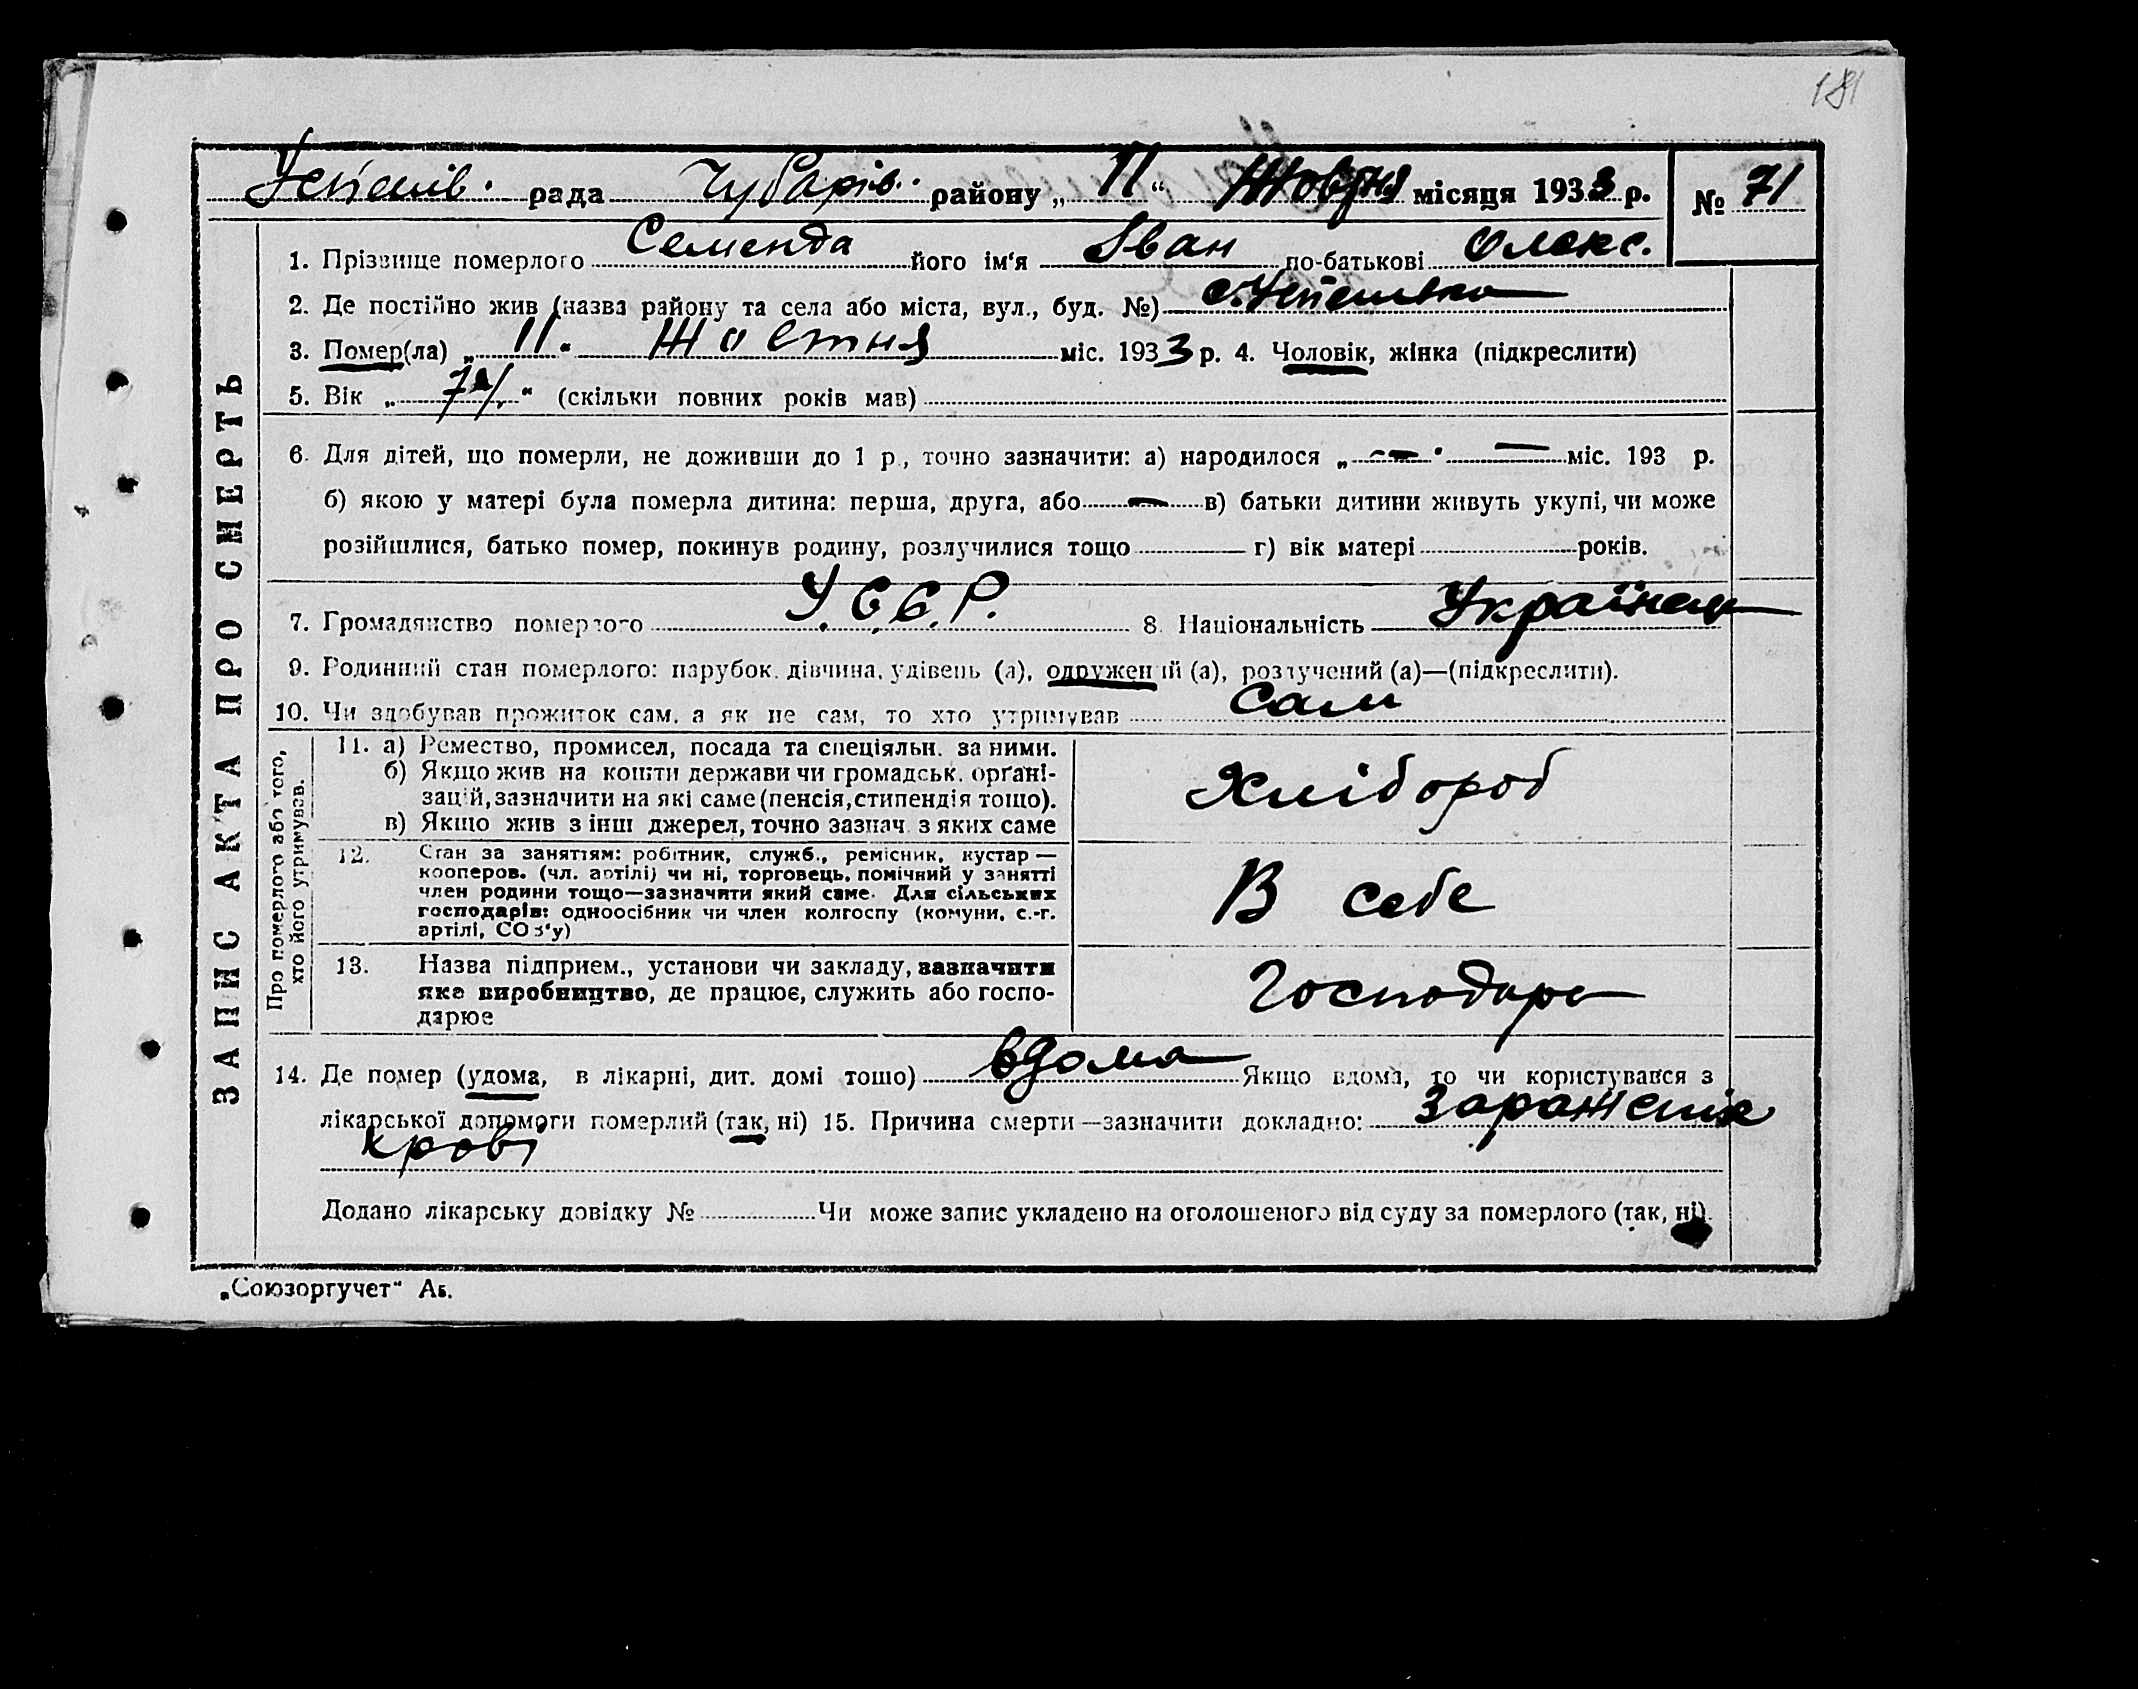 181
Успенів. рада Чубарів. району „11“ Жовтня місяця 1933 р. № 71
ЗАПИС АКТА ПРО СМЕРТЬ
1. Прізвище померлого Семенда його ім'я Іван по-батькові Олекс.
2. Де постійно жив (назва району та села або міста, вул., буд. №) с. Успенівка
3. Помер(ла) „11“ Жовтня міс. 1933 р. 4. Чоловік, жінка (підкреслити)
5. Вік „ “ (скільки повних років мав)
6. Для дітей, що померли, не доживши до 1 р., точно зазначити: а) народилося „—“ — міс. 193 р.
б) якою у матері була померла дитина: перша, друга, або — в) батьки дитини живуть укупі, чи може
розійшлися, батько помер, покинув родину, розлучилися тощо г) вік матері років.
7. Громадянство померлого У.С.С.Р. 8. Національність Українец
9. Родинний стан померлого: парубок, дівчина, удівець (а), одружений (а), розлучений (а)—(підкреслити).
10. Чи здобував прожиток сам, а як не сам, то хто утримував Сам
Про померлого або того,
хто його утримував.
11. а) Ремество, промисел, посада та спеціяльн. за ними.
б) Якщо жив на кошти держави чи громадськ. орґані-
зацій, зазначити на які саме (пенсія, стипендія тощо).
в) Якщо жив з інш джерел, точно зазнач. з яких саме
Хлібороб
12. Стан за заняттям: робітник, служб., ремісник, кустар —
кооперов. (чл. артілі) чи ні, торговець, помічний у занятті
член родини тощо—зазначити який саме. Для сільських
господарів: одноосібник чи член колгоспу (комуни, с.-г.
артілі, СОЗ'у)
В себе
13. Назва підприєм., установи чи закладу, зазначити
яке виробництво, де працює, служить або госпо-
дарює
14. Де помер (удома, в лікарні, дит. домі тощо) вдома Якщо вдома, то чи користувався з
лікарської допомоги померлий (так, ні) 15. Причина смерти—зазначити докладно: Зараженія
крові
Додано лікарську довідку № Чи може запис укладено на оголошеного від суду за померлого (так, ні).
„Союзоргучет“